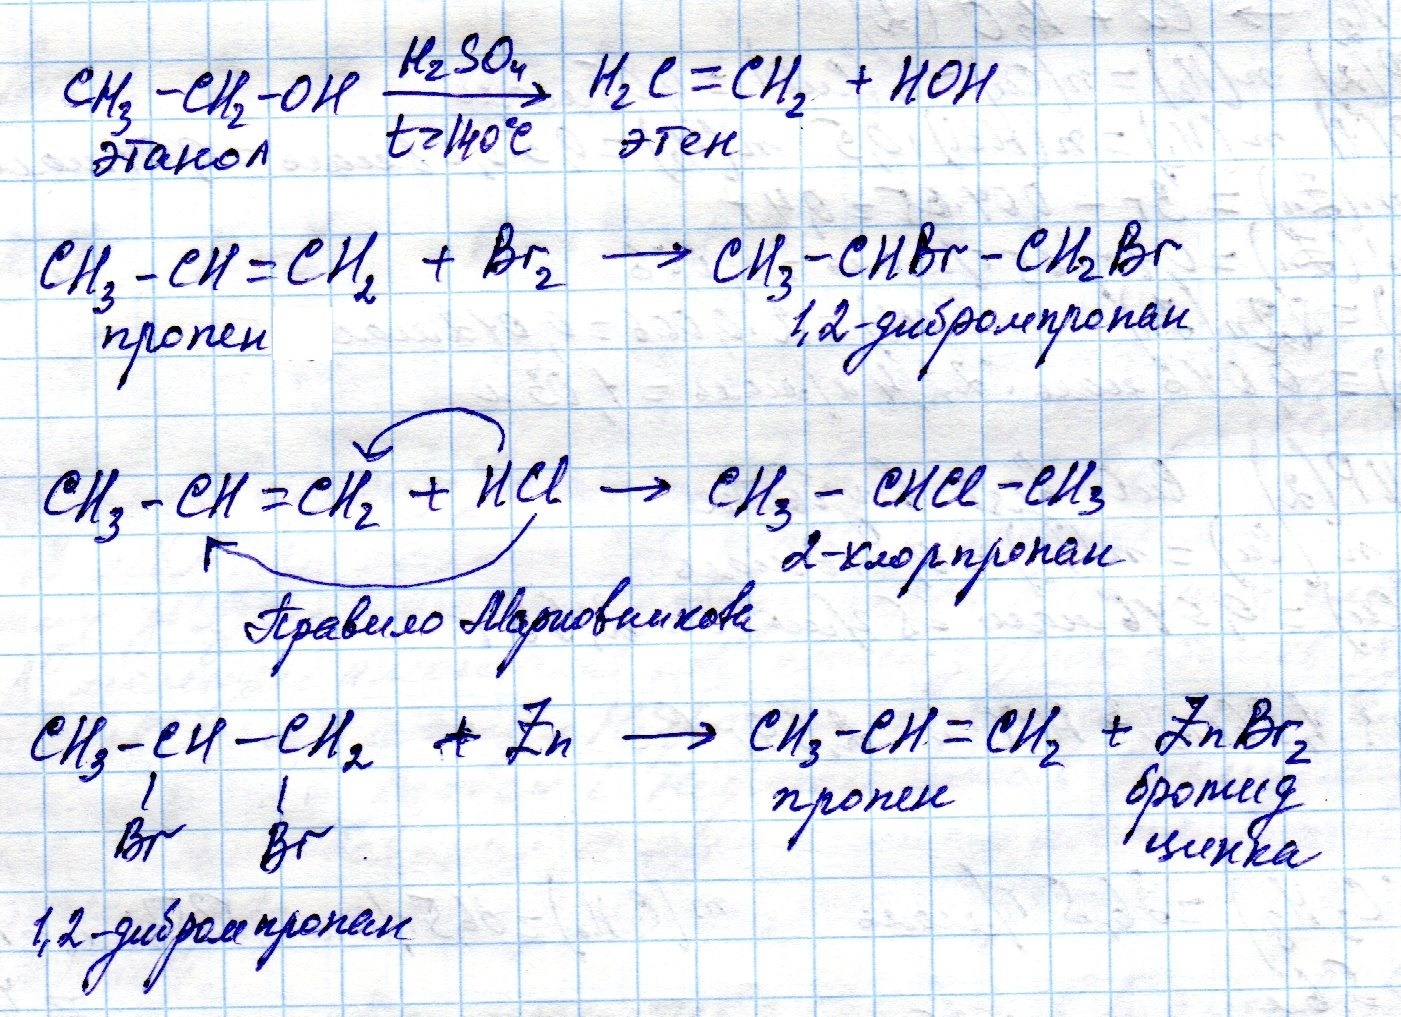 CH₃-CH₂-OH H₂SO₄ → H₂C=CH₂ + HOH
этанол t=140°C этен
CH₃-CH=CH₂ + Br₂ → CH₃-CHBr-CH₂Br
пропен 1,2-дибромпропан
CH₃-CH=CH₂ + HCl → CH₃-CHCl-CH₃
2-хлорпропан
Правило Марковникова
CH₃-CH-CH₂ + Zn → CH₃-CH=CH₂ + ZnBr₂
Br Br пропен бромид
цинка
1,2-дибромпропан